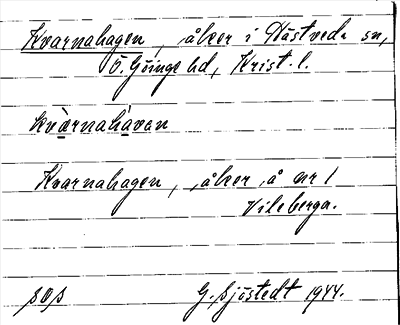 Kvarnahagen, åker i Hästveda sn,
Ö. Göinge hd, Krist. l.
kvàrnahàvan
Kvarnahagen, åker å nr 1
Vileberga.
SOS G. Sjöstedt 1944.